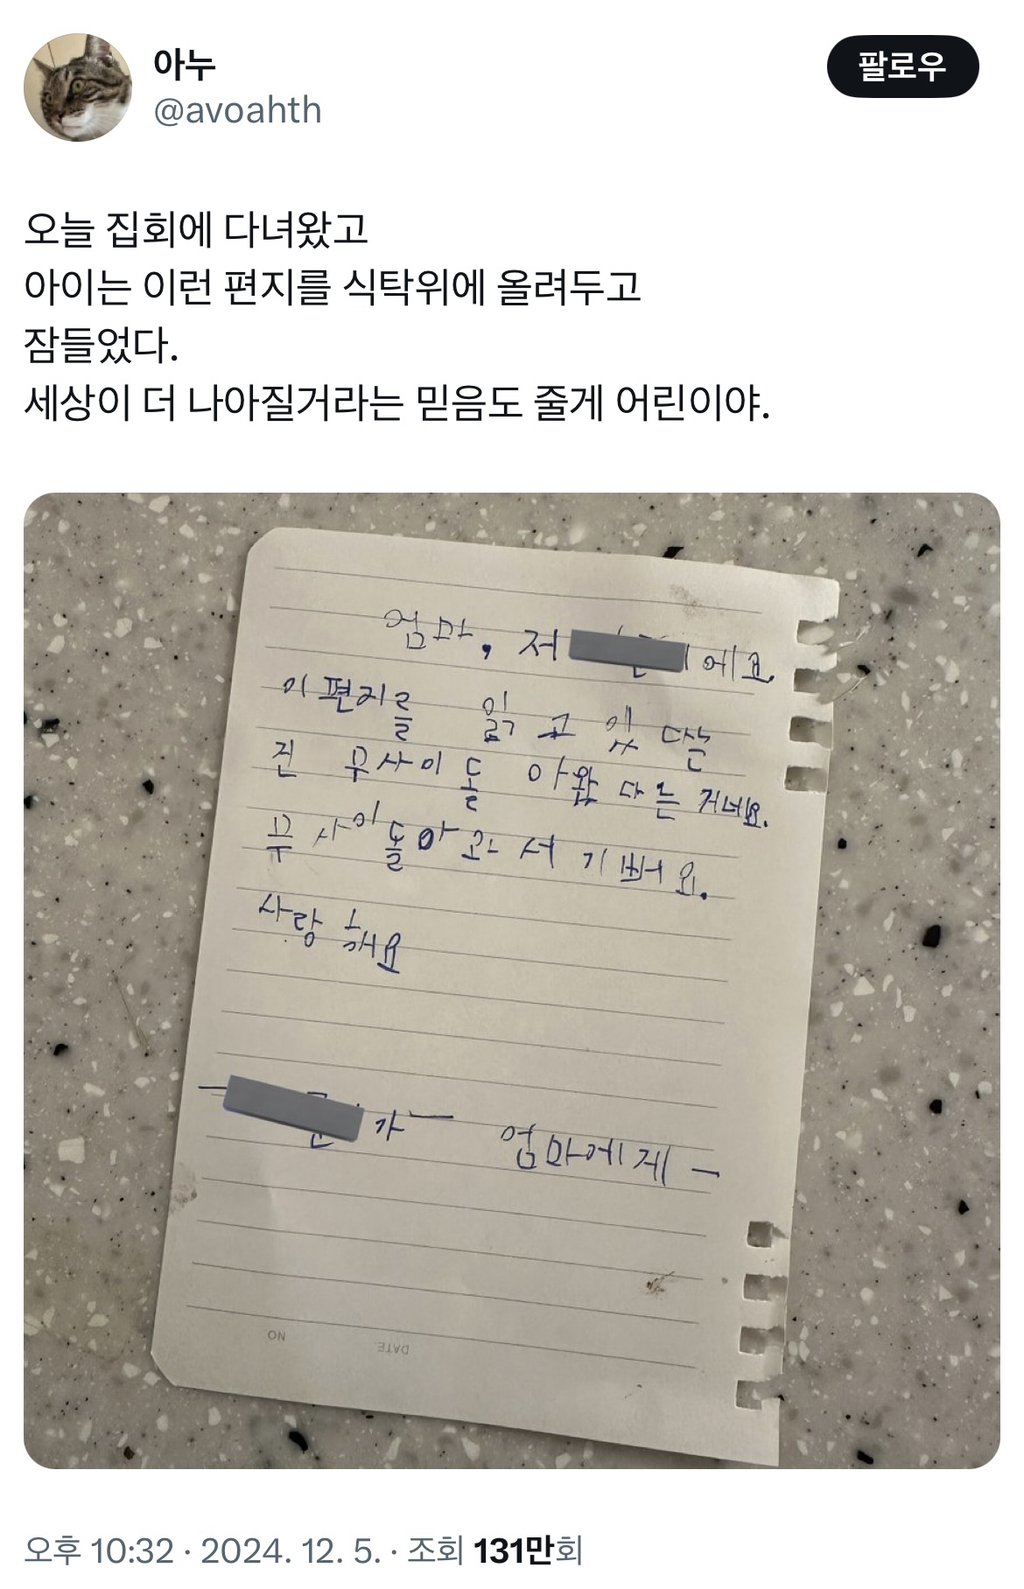 아누
팔로우
@avoahth
오늘 집회에 다녀왔고
아이는 이런 편지를 식탁위에 올려두고
잠들었다.
세상이 더 나아질거라는 믿음도 줄게 어린이야.
엄마, 저 에요
이 편지를 읽고 있다는
건 무사이 돌아왔다는 거네요.
무사이 돌아와서 기뻐요.
사랑해요
- 가 - 엄마에게 -
NO DATE
오후 10:32 · 2024. 12. 5. · 조회 131만회